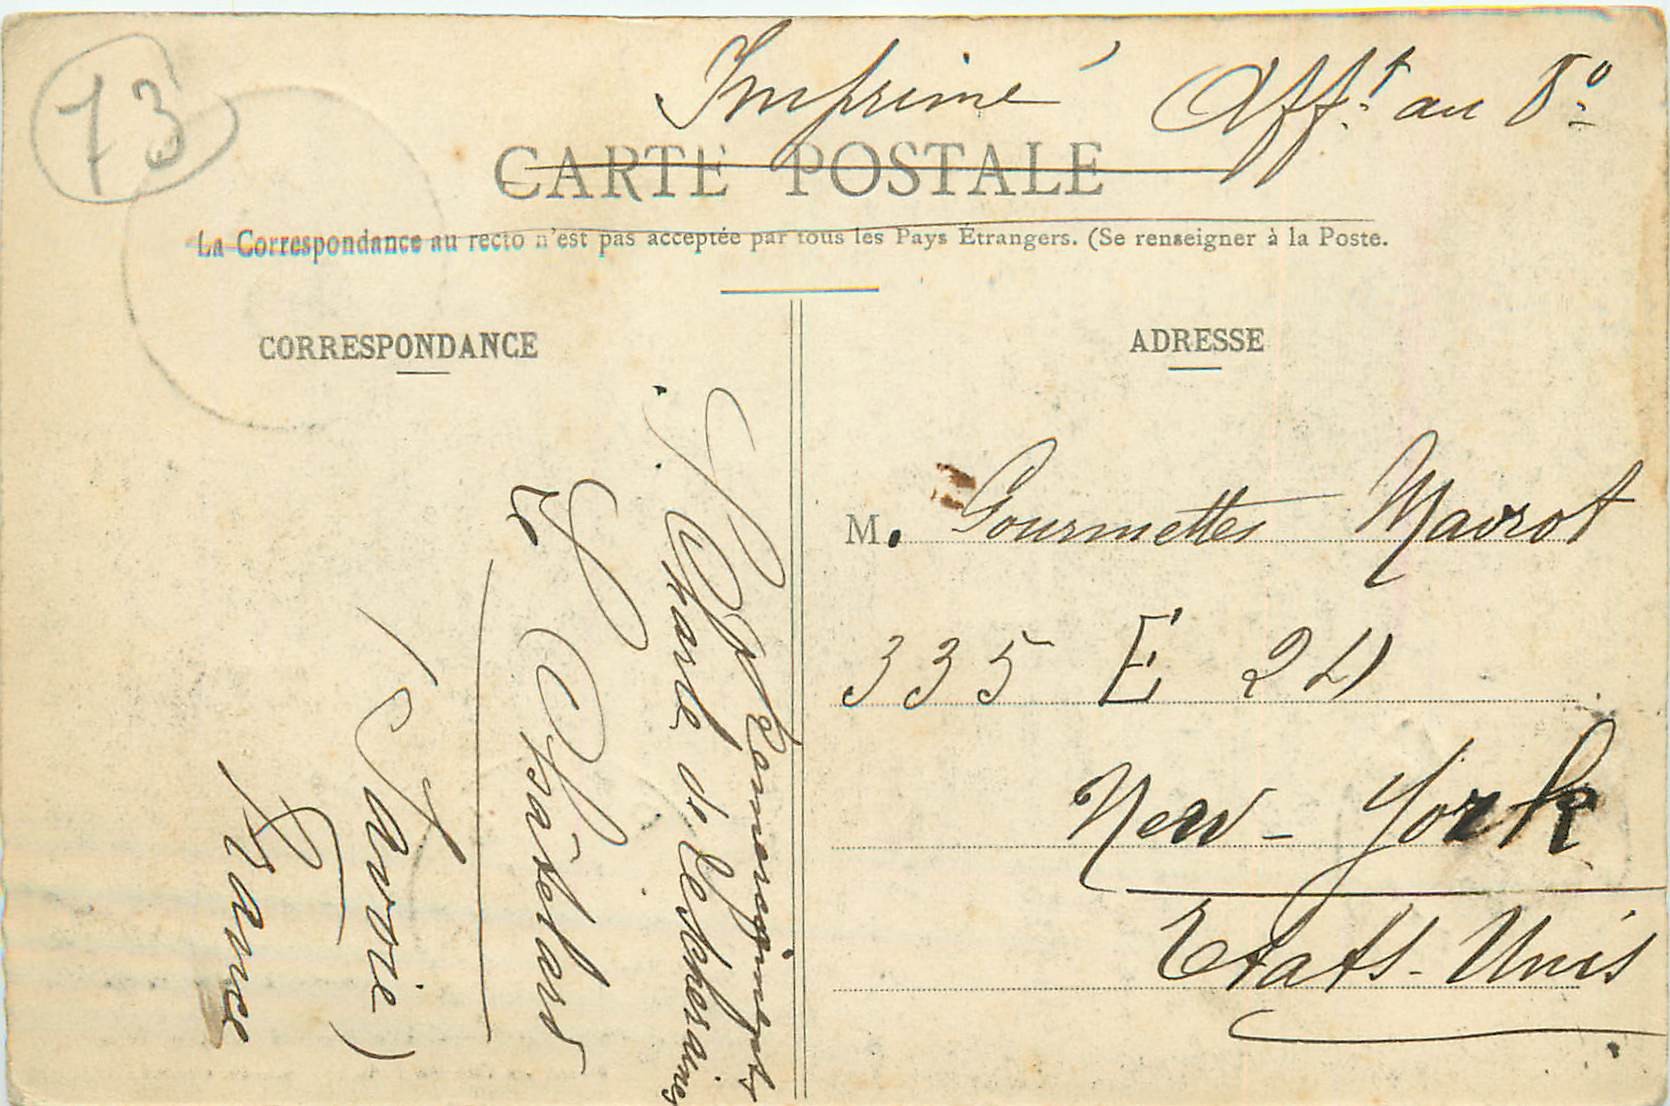 73
Imprimé Afft au Vo
CARTE POSTALE
La Correspondance au recto n'est pas acceptée par tous les Pays Étrangers. (Se renseigner à la Poste.
CORRESPONDANCE
Le Châtelard
(Savoie)
France
ADRESSE
M. Gourmettes Mavrot
335 E 24
New-York
Etats-Unis